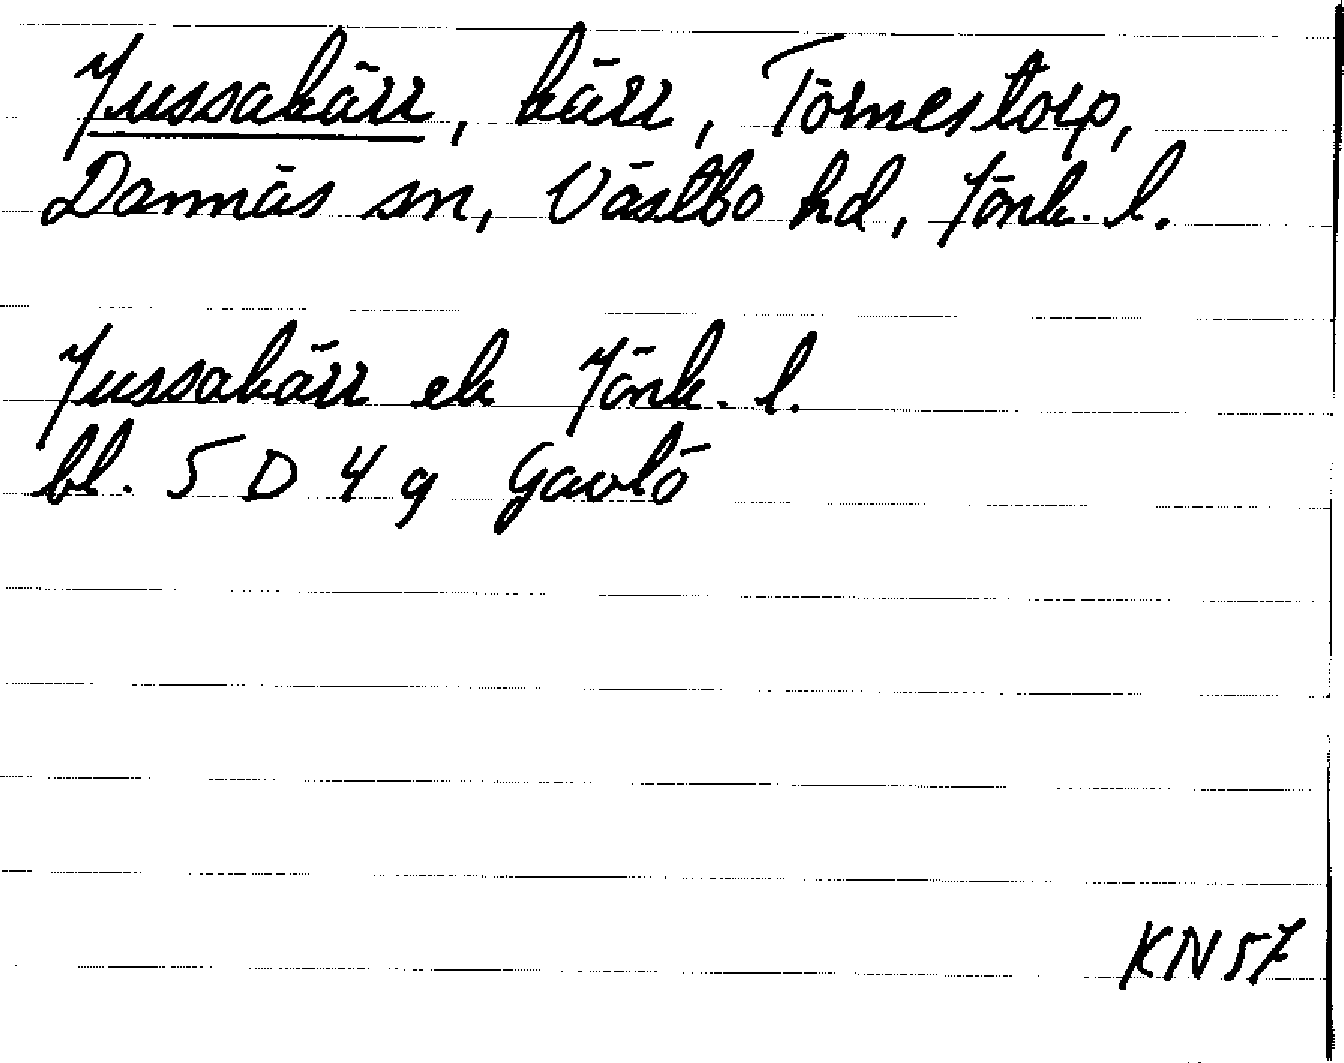 Jussakärr, kärr, Törnestorp,
Dannäs sn, Västbo hd, Jönk. l.
Jussakärr ek Jönk. l.
bl. 5 D 4 g Gavlö
KN57